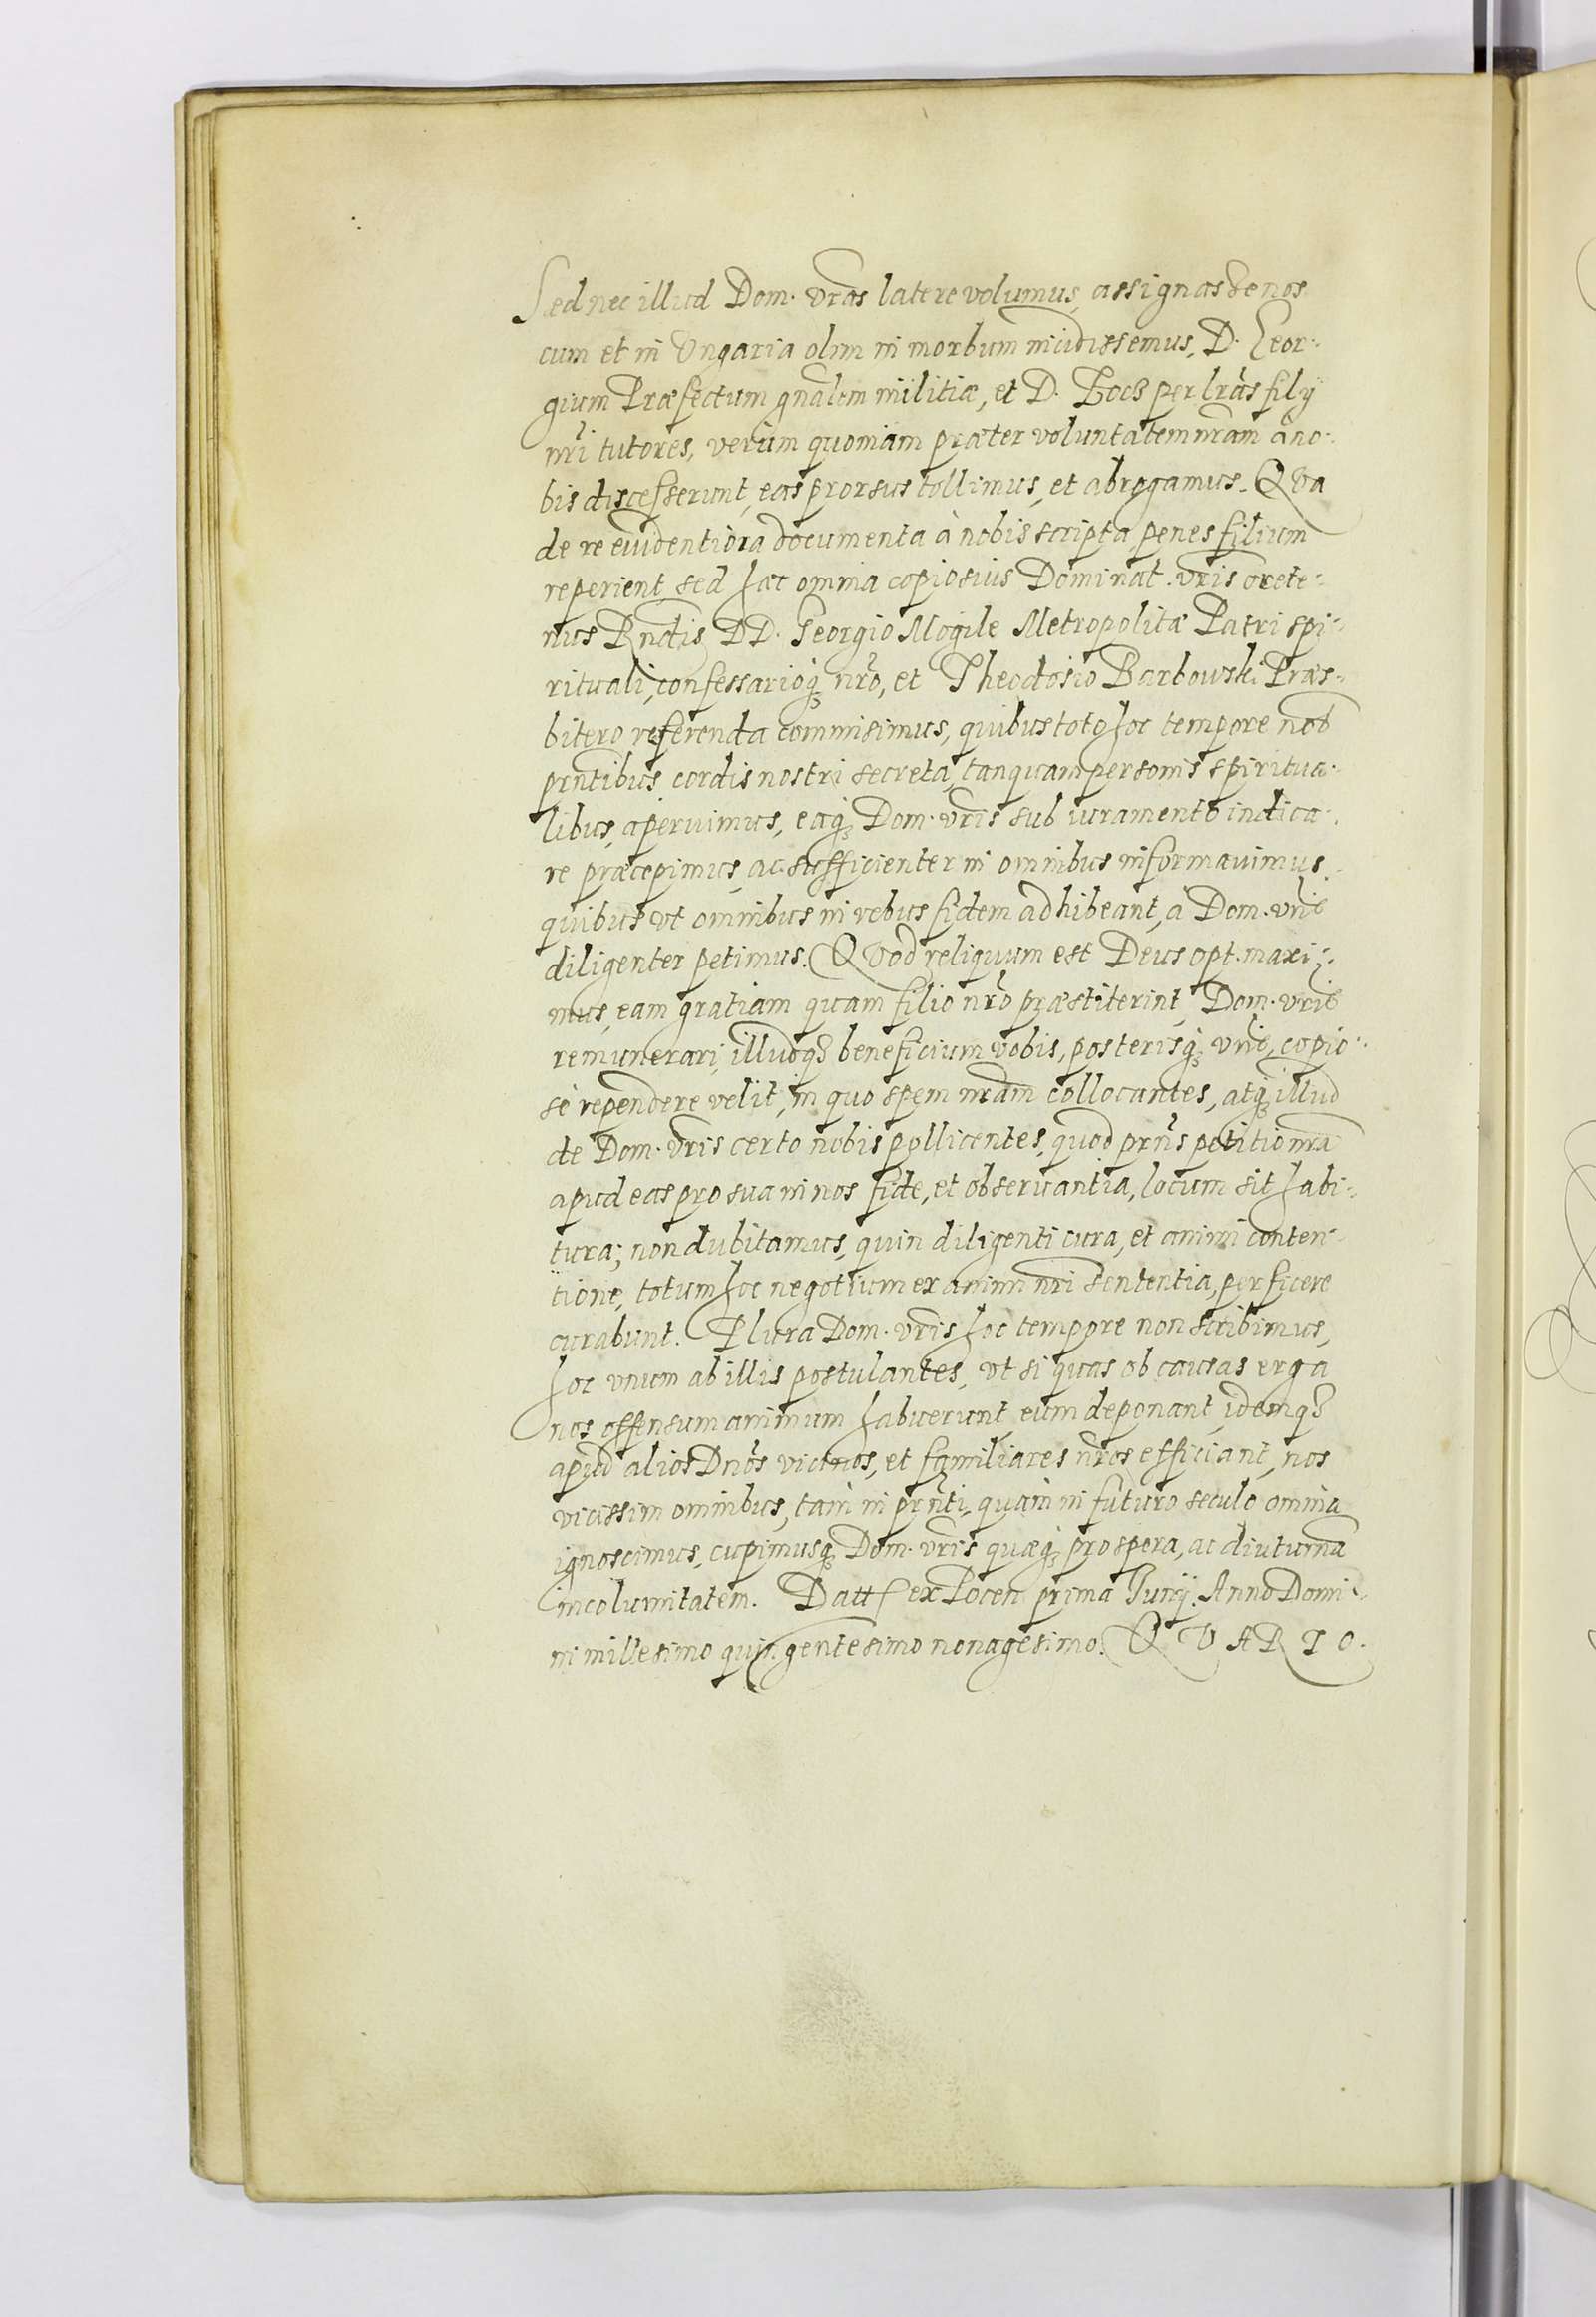 Sed nec illud Dom. vras latere volumus, assignasse nos
cum et in Ungaria olim in morbum incidissemus, D. Geor-
gium Præfectum gnalem militiæ, et D. Bocz per lras filij
nri tutores, verum quoniam præter voluntatem nram à no-
bis discesserunt, eas prorsus tollimus, et abrogamus. QVa
de re euidentiora documenta à nobis scripta penes filium
reperient, sed hæc omnia copiosius Dominat. vris orete-
nus Rndis DD. Georgio Mogile Metropolitæ Patri spi-
rituali, confessarioq nro, et Theodosio Barbowski Præs-
bitero referenda commisimus, quibus toto hoc tempore nob
prntibus cordis nostri secreta, tanquam personis spiritua-
libus, aperuimus, eaq Dom. vris sub iuramento indica-
re præcepimus, ac sufficienter in omnibus informauimus,
quibus vt omnibus in rebus fidem adhibeant, à Dom. vris
diligenter petimus. QVod reliquum est Deus opt. maxi-
mus, eam gratiam quam filio nro præstiterint, Dom. vris
remunerari, illudq beneficium vobis, posterisq vris, copio-
sè rependere velit, in quo spem nram collocantes, atq illud
de Dom. vris certo nobis pollicentes, quod prns petitio nra
apud eas pro sua in nos fide, et obseruantia, locum sit habi-
tura; non dubitamus, quin diligenti cura, et animi conten-
tione, totum hoc negotium ex animi nri sententia, perficere
curabunt. Plura Dom. vris hoc tempore non scribimus,
hoc vnum ab illis postulantes, vt si quas ob causas erga
nos offensum animum habuerunt, eum deponant, idemq
apud alios Dnos vicinos, et familiares nros efficiant, nos
vicissim omnibus, tam in prnti, quam in futuro seculo omnia
ignoscimus, cupimusq Dom. vris quæq prospera, ac diuturna
incolumitatem. Datt ex Pocen prima Junij. Anno Domi-
ni millesimo quingentesimo nonagesimo. QVARTO.